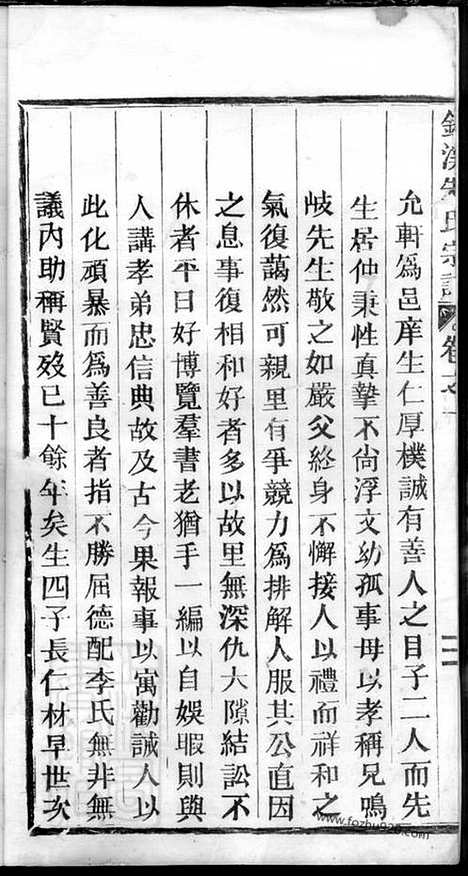 允軒爲邑庠生仁厚樸誠有善人之目子二人而先
生居仲秉性真摯不尙浮文幼孤事母以孝稱兄鳴
岐先生敬之如嚴父終身不懈接人以禮而祥和之
氣復藹然可親里有爭競力爲排解人服其公直因
之息事復相和好者多以故里無深仇大隙結訟不
休者平日好博覽羣書老猶手一編以自娛暇則與
人講孝弟忠信典故及古今果報事以寓勸誡人以
此化頑暴而爲善良者指不勝屈德配李氏無非無
議內助稱賢歿已十餘年矣生四子長仁材早世次
氏宗譜 卷之一
www.fozhu920.com